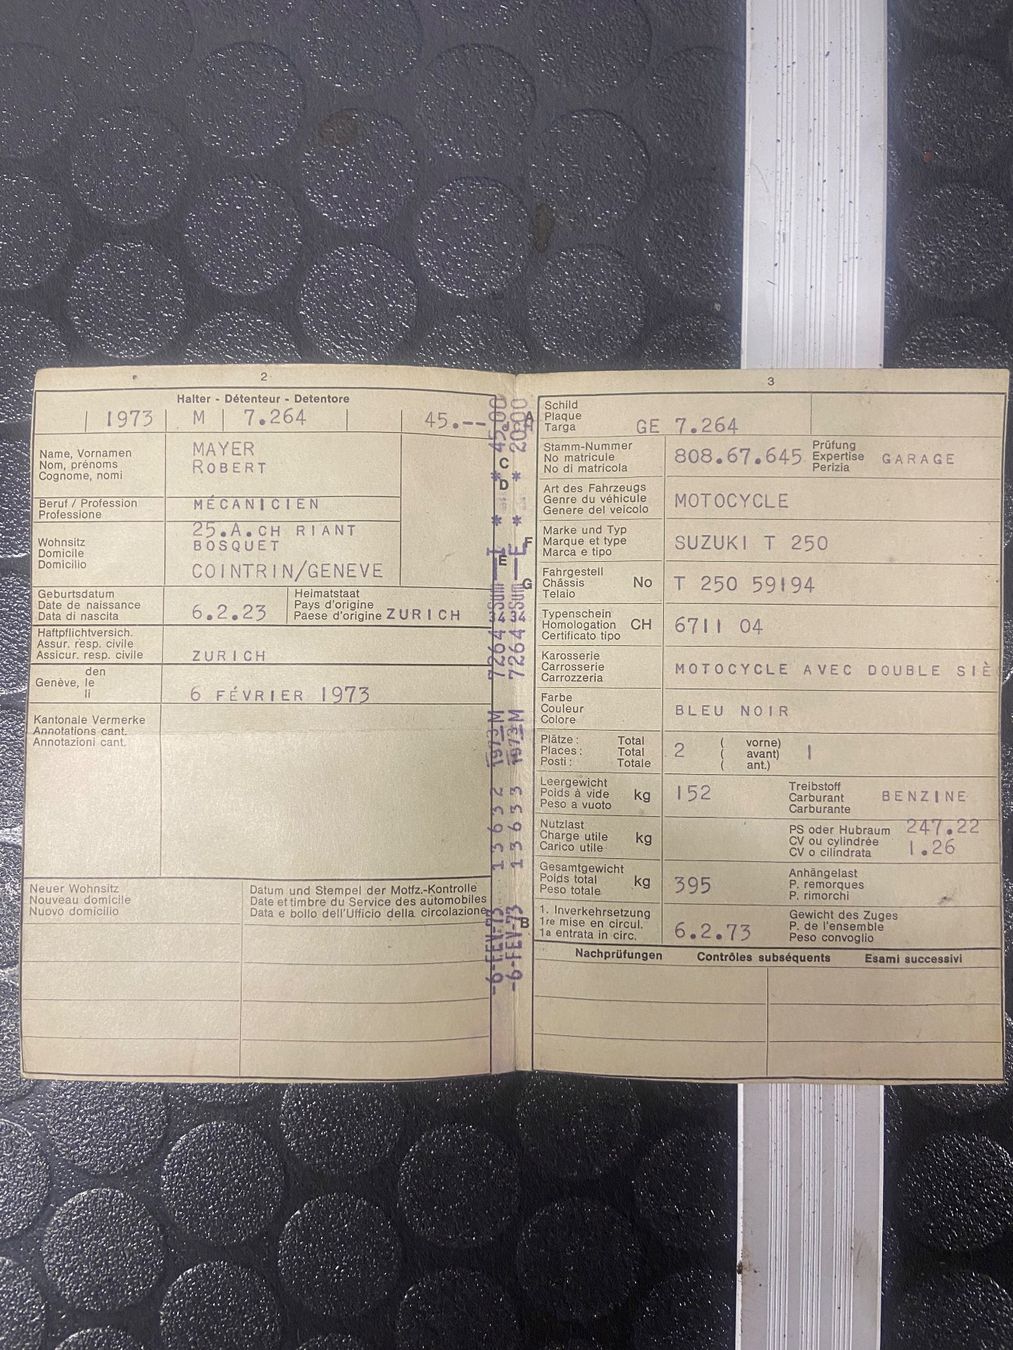 2
Halter - Détenteur - Detentore
1973 M 7.264 45.--
Name, Vornamen
Nom, prénoms
Cognome, nomi
MAYER
ROBERT
Beruf / Profession
Professione
MÉCANICIEN
Wohnsitz
Domicile
Domicilio
25.A.CH RIANT
BOSQUET
COINTRIN/GENEVE
Geburtsdatum
Date de naissance
Data di nascita
6.2.23
Heimatstaat
Pays d'origine
Paese d'origine ZURICH
Haftpflichtversich.
Assur. resp. civile
Assicur. resp. civile
ZURICH
den
Genève, le
li
6 FÉVRIER 1973
Kantonale Vermerke
Annotations cant.
Annotazioni cant.
Neuer Wohnsitz
Nouveau domicile
Nuovo domicilio
Datum und Stempel der Motfz.-Kontrolle
Date et timbre du Service des automobiles
Data e bollo dell'Ufficio della circolazione
-6-FEV-73 13632 1973 M 7264
-6-FEV-73 13633 1973 M 7264
A
C
D
F
E
G
B
3
Schild
Plaque
Targa
GE 7.264
Stamm-Nummer
No matricule
No di matricola
808.67.645
Prüfung
Expertise
Perizia
GARAGE
Art des Fahrzeugs
Genre du véhicule
Genere del veicolo
MOTOCYCLE
Marke und Typ
Marque et type
Marca e tipo
SUZUKI T 250
Fahrgestell
Châssis No
Telaio
T 250 59194
Typenschein
Homologation CH
Certificato tipo
6711 04
Karosserie
Carrosserie
Carrozzeria
MOTOCYCLE AVEC DOUBLE SIÈ
Farbe
Couleur
Colore
BLEU NOIR
Plätze: Total
Places: Total
Posti: Totale
2
( vorne)
( avant)
( ant.)
1
Leergewicht
Poids à vide kg
Peso a vuoto
152
Treibstoff
Carburant
Carburante
BENZINE
Nutzlast
Charge utile kg
Carico utile
PS oder Hubraum
CV ou cylindrée
CV o cilindrata
247.22
1.26
Gesamtgewicht
Poids total kg
Peso totale
395
Anhängelast
P. remorques
P. rimorchi
1. Inverkehrsetzung
1re mise en circul.
1a entrata in circ.
6.2.73
Gewicht des Zuges
P. de l'ensemble
Peso convoglio
Nachprüfungen Contrôles subséquents Esami successivi